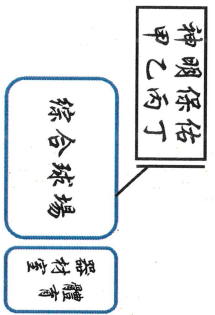 神明保佑
甲乙丙丁
綜合球場
體育
器材室